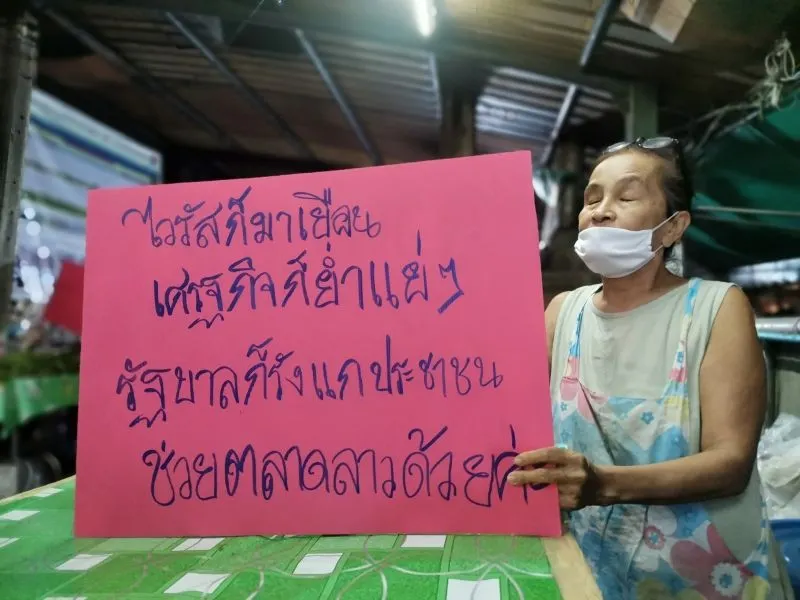 ไวรัสก็มาเยือน
เศรฐกิจก็ย่ำแย่ๆ
รัฐบาลก็รังแกประชาชน
ช่วยตลาดลาวด้วยค่ะ